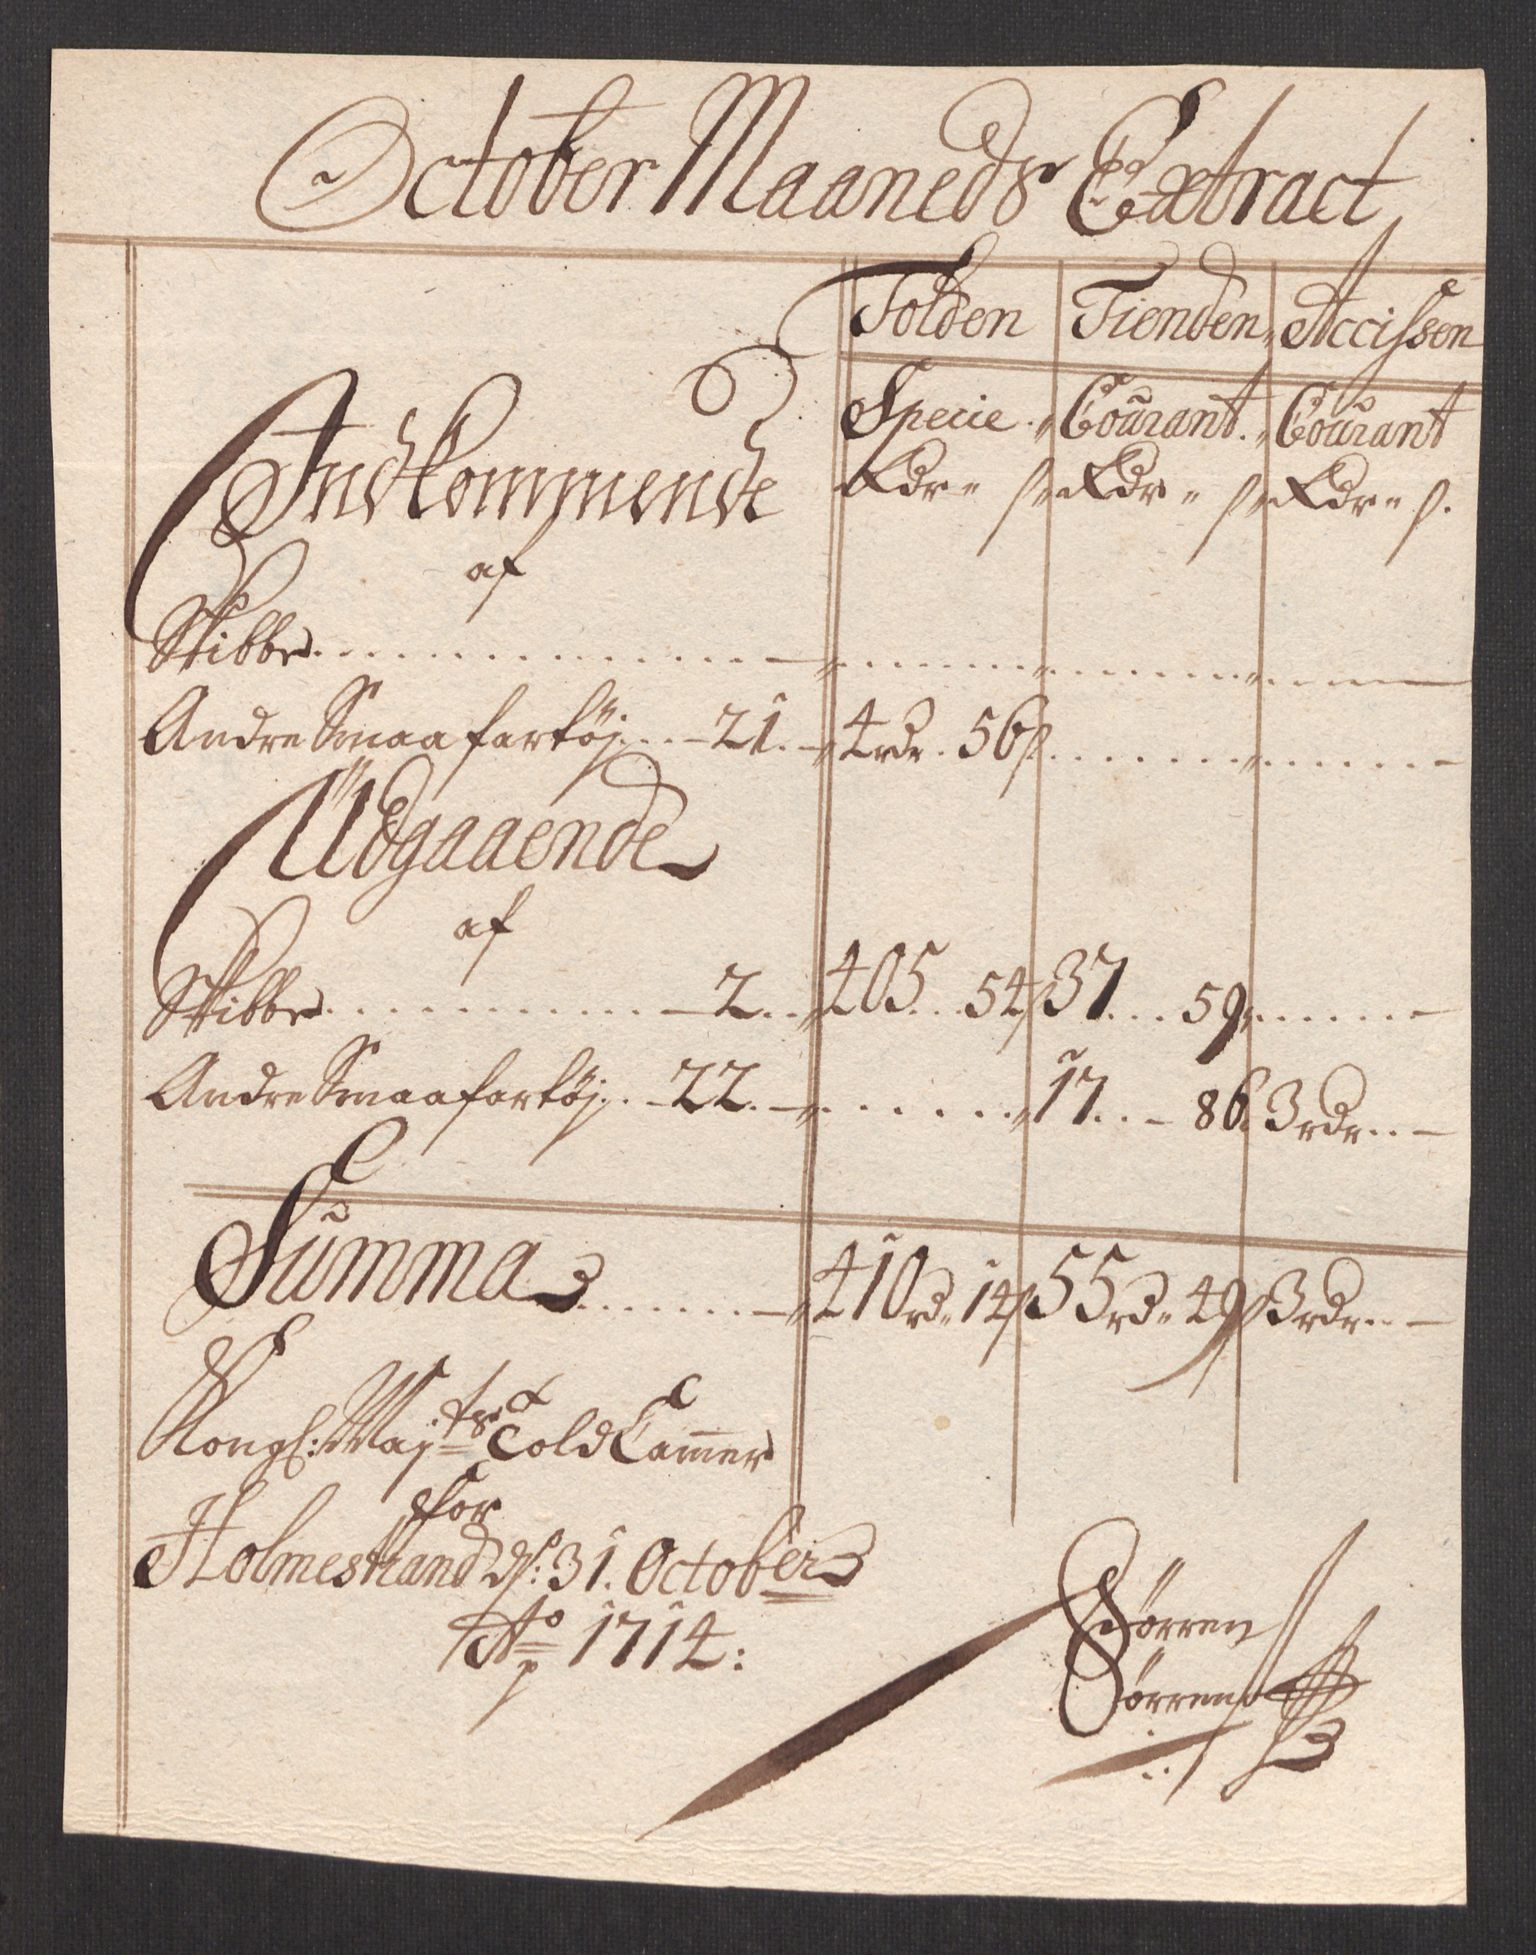 October Maaneds Extract
Tolden Tienden Accissen
Specie Courant Courant
Rdr ß Rdr ß Rdr ß
Indkommende
af
Skibbe
Andre Smaa fartöj 21 4rdr. 56ß
Udgaaende
af
Skibbe 2 405 54ß 37 59
Andre Smaa fartöj 22 17 86 3rdr
Summa 410rd 14ß 55rd 49ß 3rdr
Kongl: Maj:ts Told Camer
for
Holmestrand d: 31. October
Ao 1714:
Sörren
Sörrens